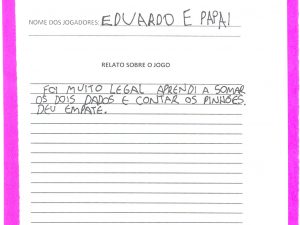 NOME DOS JOGADORES: EDUARDO E PAPAI
RELATO SOBRE O JOGO
FOI MUITO LEGAL APRENDI A SOMAR
OS DOIS DADOS E CONTAR OS PINHÕES.
DEU EMPATE.